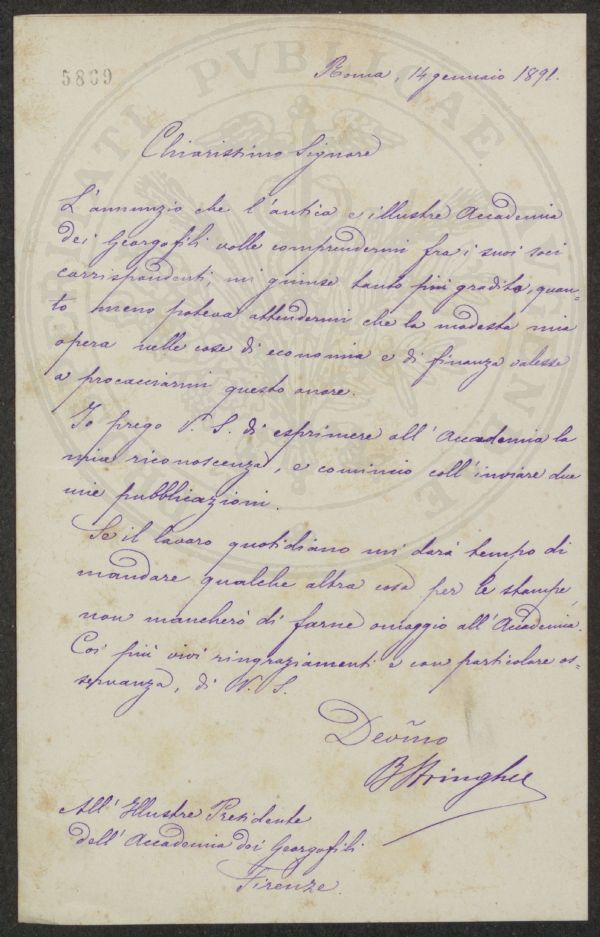 5869
Roma, 14 gennaio 1891.
Chiarissimo Signore
L'annunzio che l'antica e illustre Accademia
dei Georgofili volle comprendermi fra i suoi soci
corrispondenti, mi giunse tanto più gradito, quan-
to meno poteva attendermi che la modesta mia
opera nelle cose di economia e di finanza valesse
a procacciarmi questo onore.
Io prego V. S. di esprimere all'Accademia la
mia riconoscenza, e comincio coll'inviare due
mie pubblicazioni.
Se il lavoro quotidiano mi darà tempo di
mandare qualche altra cosa per le stampe,
non mancherò di farne omaggio all'Accademia.
Coi più vivi ringraziamenti e con particolare os-
servanza, di V. S.
Devm̃o
B Stringher
All'Illustre Presidente
dell'Accademia dei Georgofili
Firenze.